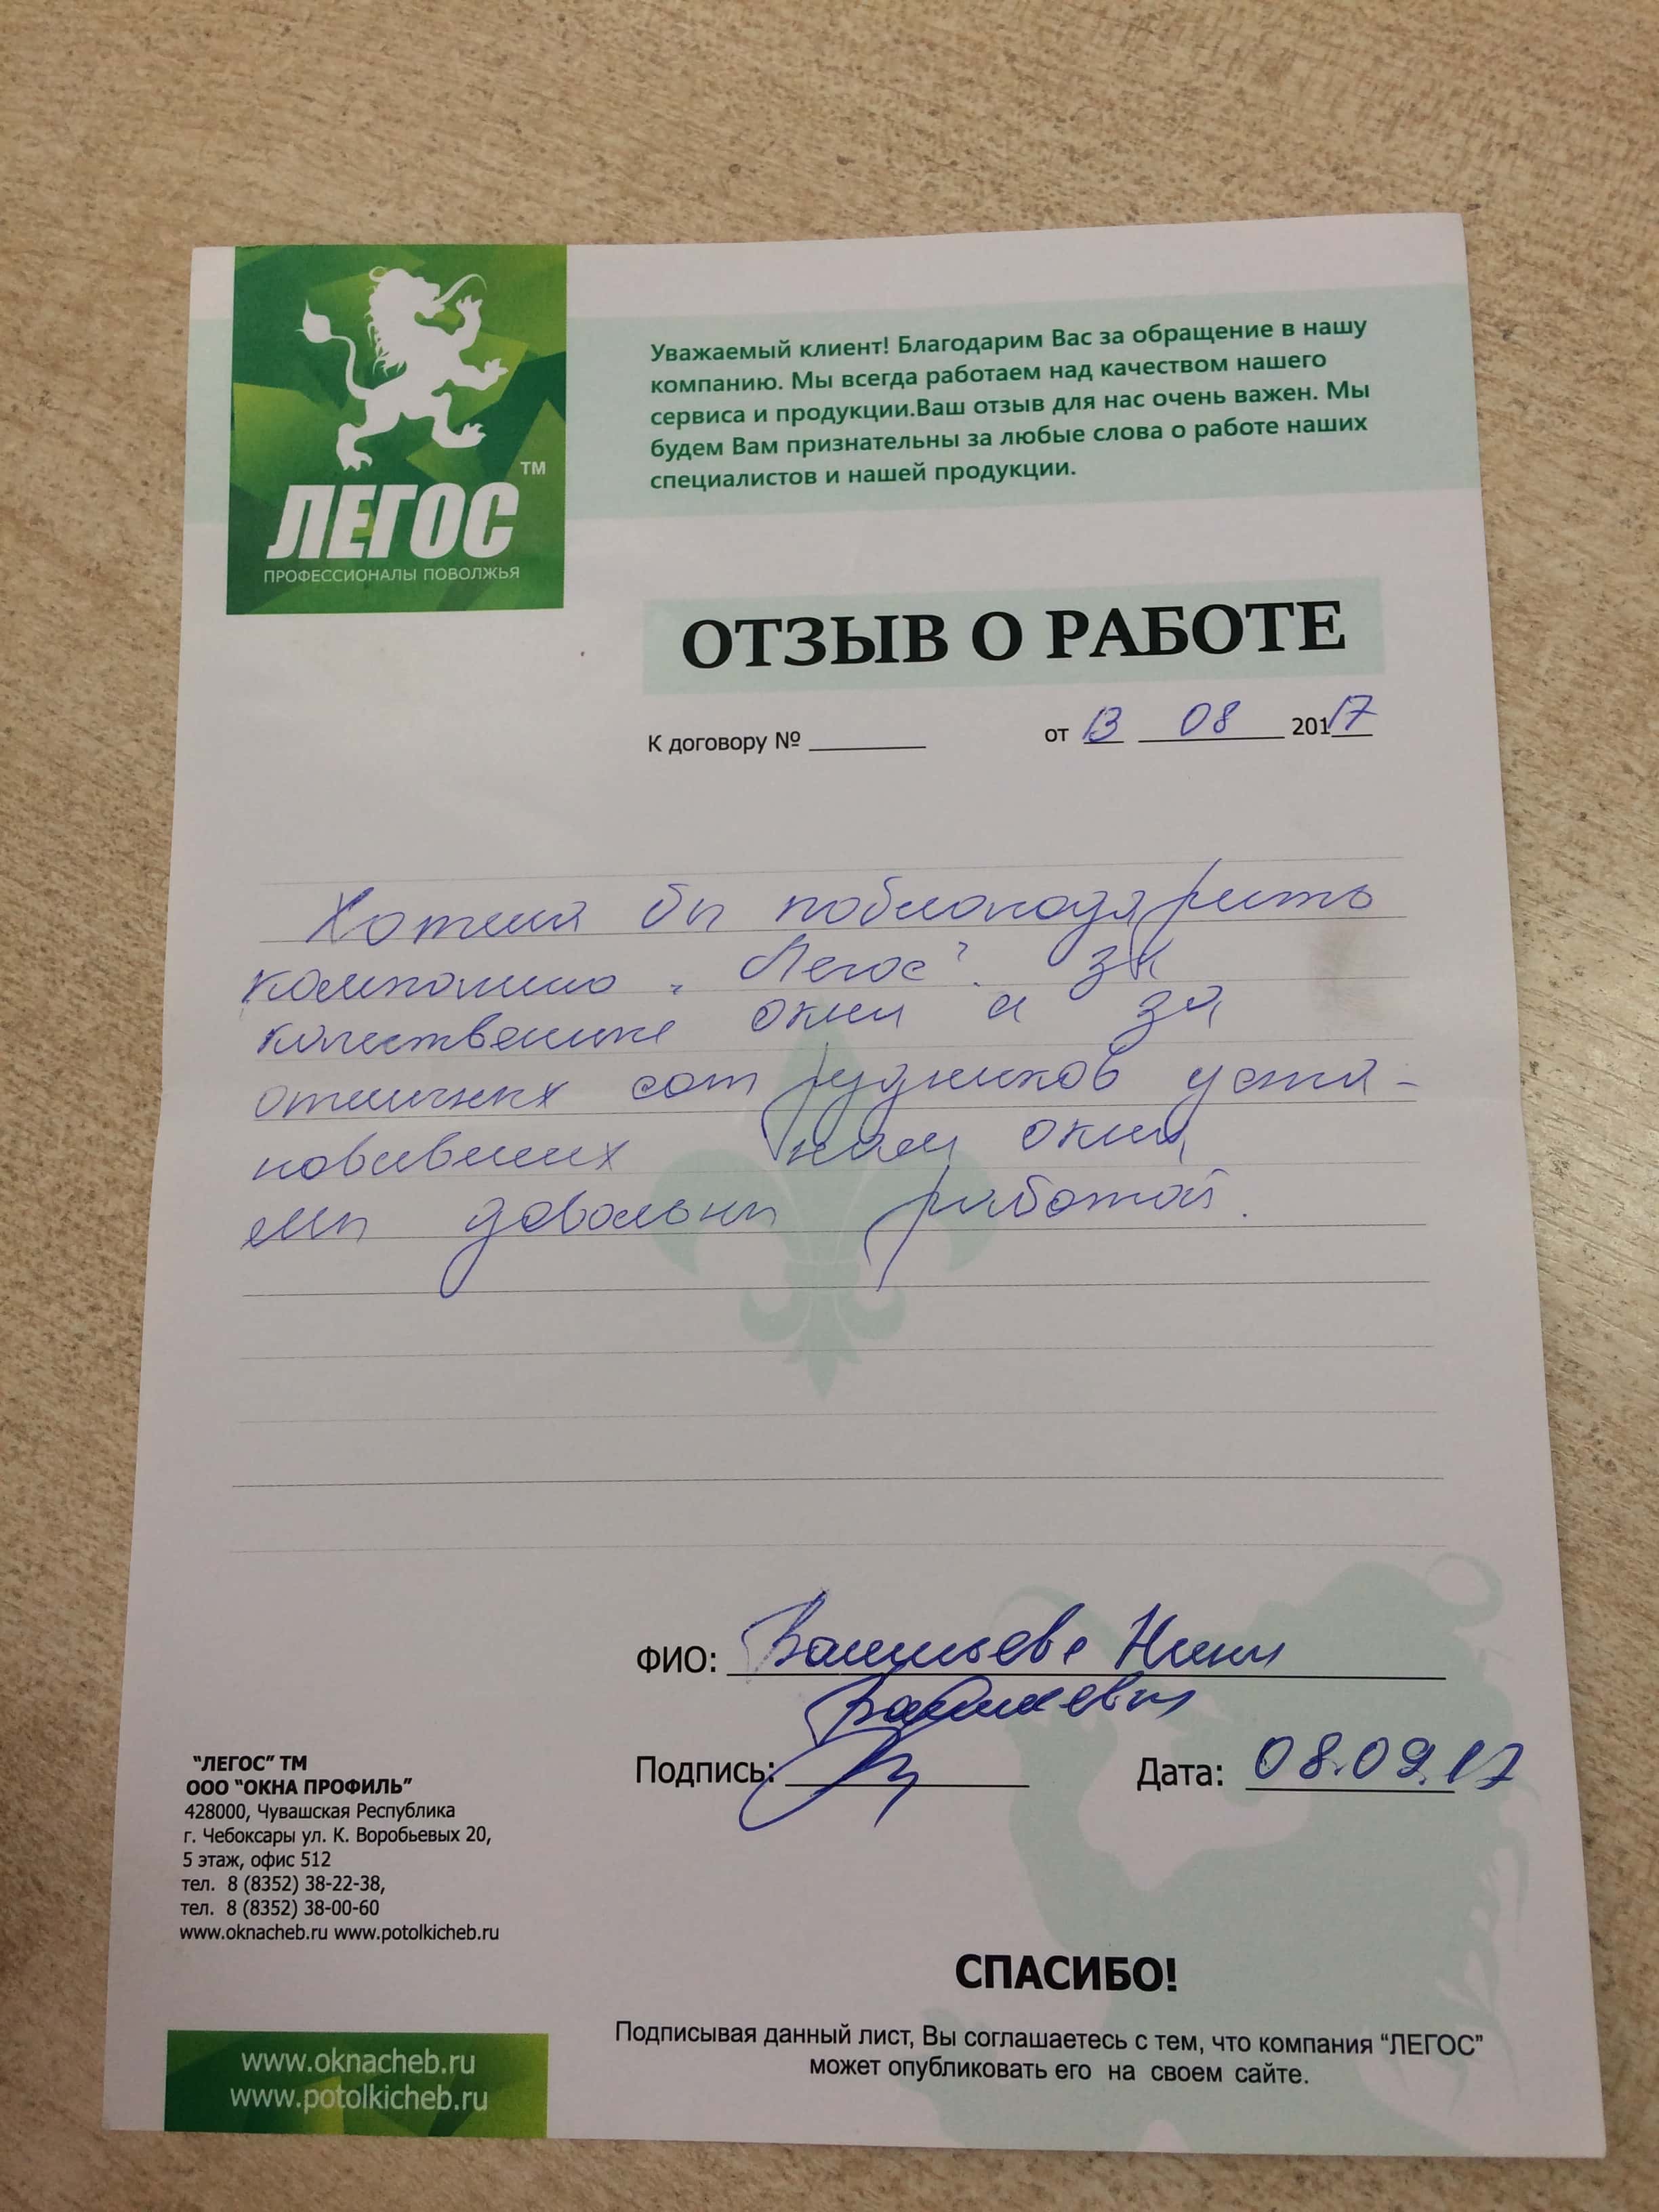 ЛЕГОС
TM
ПРОФЕССИОНАЛЫ ПОВОЛЖЬЯ
Уважаемый клиент! Благодарим Вас за обращение в нашу
компанию. Мы всегда работаем над качеством нашего
сервиса и продукции.Ваш отзыв для нас очень важен. Мы
будем Вам признательны за любые слова о работе наших
специалистов и нашей продукции.
ОТЗЫВ О РАБОТЕ
К договору № от 13 08 2017
Хотела бы поблагодарить
компанию "Легос" за
качественные окна и за
отличных сотрудников уста-
новивших нам окна,
мы довольны работой.
ФИО: Васильева Нина
Подпись: Дата: 08.09.17
"ЛЕГОС" ТМ
ООО "ОКНА ПРОФИЛЬ"
428000, Чувашская Республика
г. Чебоксары ул. К. Воробьевых 20,
5 этаж, офис 512
тел. 8 (8352) 38-22-38,
тел. 8 (8352) 38-00-60
www.oknacheb.ru www.potolkicheb.ru
СПАСИБО!
Подписывая данный лист, Вы соглашаетесь с тем, что компания "ЛЕГОС"
может опубликовать его на своем сайте.
www.oknacheb.ru
www.potolkicheb.ru